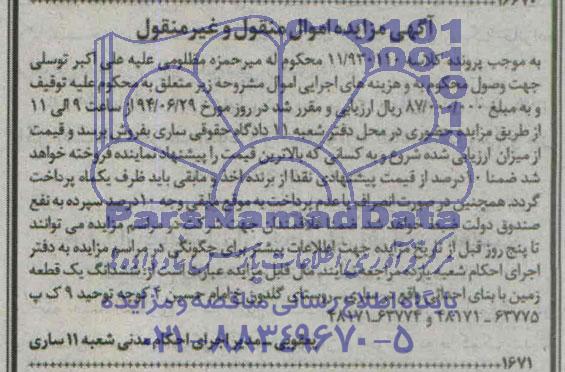 ۱۶۶۷۰
آگهی مزایده اموال منقول و غیر منقول
به موجب پرونده کلاسه ۱۱/۹۳۰۱۱۰ محکوم له میرحمزه مظلومی علیه علی اکبر توسلی
جهت وصول محکوم به و هزینه های اجرایی اموال مشروحه زیر متعلق به محکوم علیه توقیف
و به مبلغ ۸۷/۰۰۰/۰۰۰ ریال ارزیابی و مقرر شد در روز مورخ ۹۴/۰۶/۲۹ از ساعت ۹ الی ۱۱
از طریق مزایده حضوری در محل دفتر شعبه ۱۱ دادگاه حقوقی ساری بفروش برسد و قیمت
از میزان ارزیابی شده شروع و به کسانی که بالاترین قیمت را پیشنهاد نماینده فروخته خواهد
شد ضمنا ۱۰ درصد از قیمت پیشنهادی نقدا از برنده اخذ و مابقی باید ظرف یکماه پرداخت
گردد. همچنین در صورت انصراف یا عدم پرداخت به موقع مابقی وجه ۱۰ درصد سپرده به نفع
صندوق دولت ضبط خواهد شد ضمنا متقاضیان جهت شرکت در مراسم مزایده می توانند
تا پنج روز قبل از تاریخ مزایده جهت اطلاعات بیشتر برای چگونگی در مراسم مزایده به دفتر
اجرای احکام شعبه یازده مراجعه نمایند مال قابل مزایده عبارت است از ششدانگ یک قطعه
زمین با بنای احداثی واقع در ساری روستای گلدون خ امام حسین ۴ کوچه توحید ۹ ک پ
۶۳۷۷۵ ـ ۴۸۱۷۱ و ۶۳۷۷۴ـ۴۸۱۷۱
یعقوبی ـ مدیر اجرای احکام مدنی شعبه ۱۱ ساری
۱۶۷۱
ParsNamadData
مرکز فرآوری اطلاعات پارس نماد داده ها
پایگاه اطلاع رسانی مناقصه و مزایده
۰۲۱-۸۸۳۴۹۶۷۰-۵